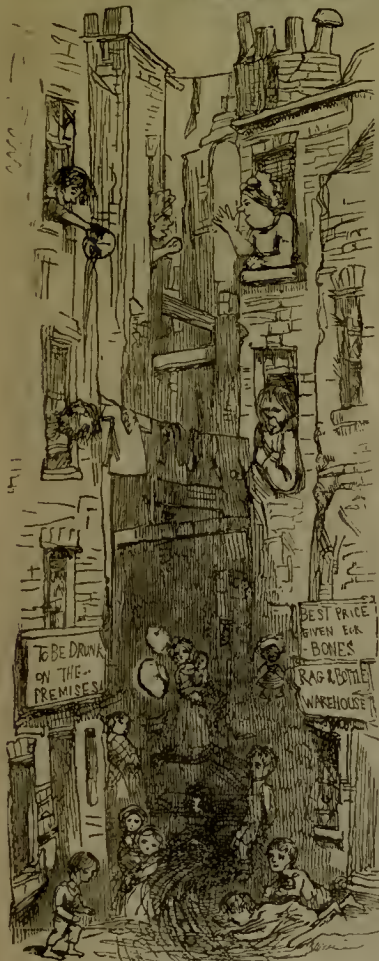 TO BE DRUNK
ON THE
PREMISES
BEST PRICE
GIVEN FOR
BONES
RAG & BOTTLE
WAREHOUSE